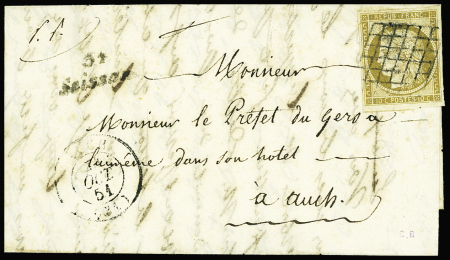 P.P.
31
Seissan
REPUB. FRANC.
10 C. POSTES 10 C.
Monsieur
Monsieur le Préfet du Gers à
lui même dans son hotel
à auch.
OCT.
51
(31)
C.R